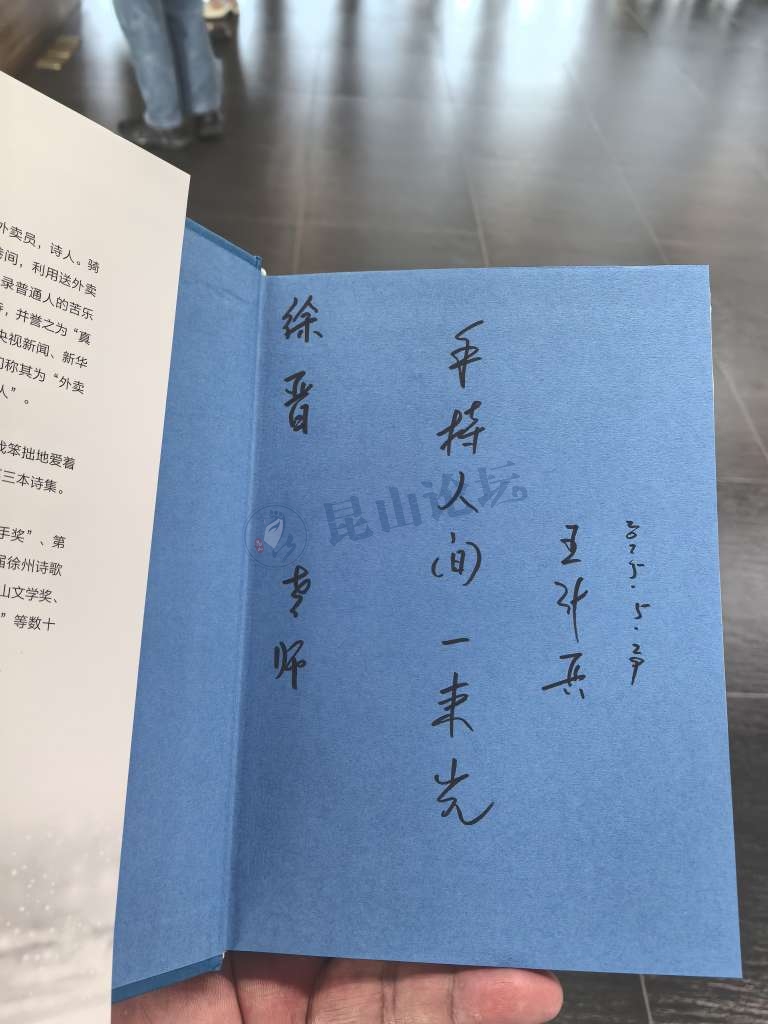 外卖员，诗人。骑
间，利用送外卖
录普通人的苦乐
，并誉之为“真
央视新闻、新华
们称其为“外卖
人”。
我笨拙地爱着
三本诗集。
手奖”、第
届徐州诗歌
山文学奖、
”等数十
徐晋 老师
手持人间一束光
王计兵
2025.5.29
昆山论坛